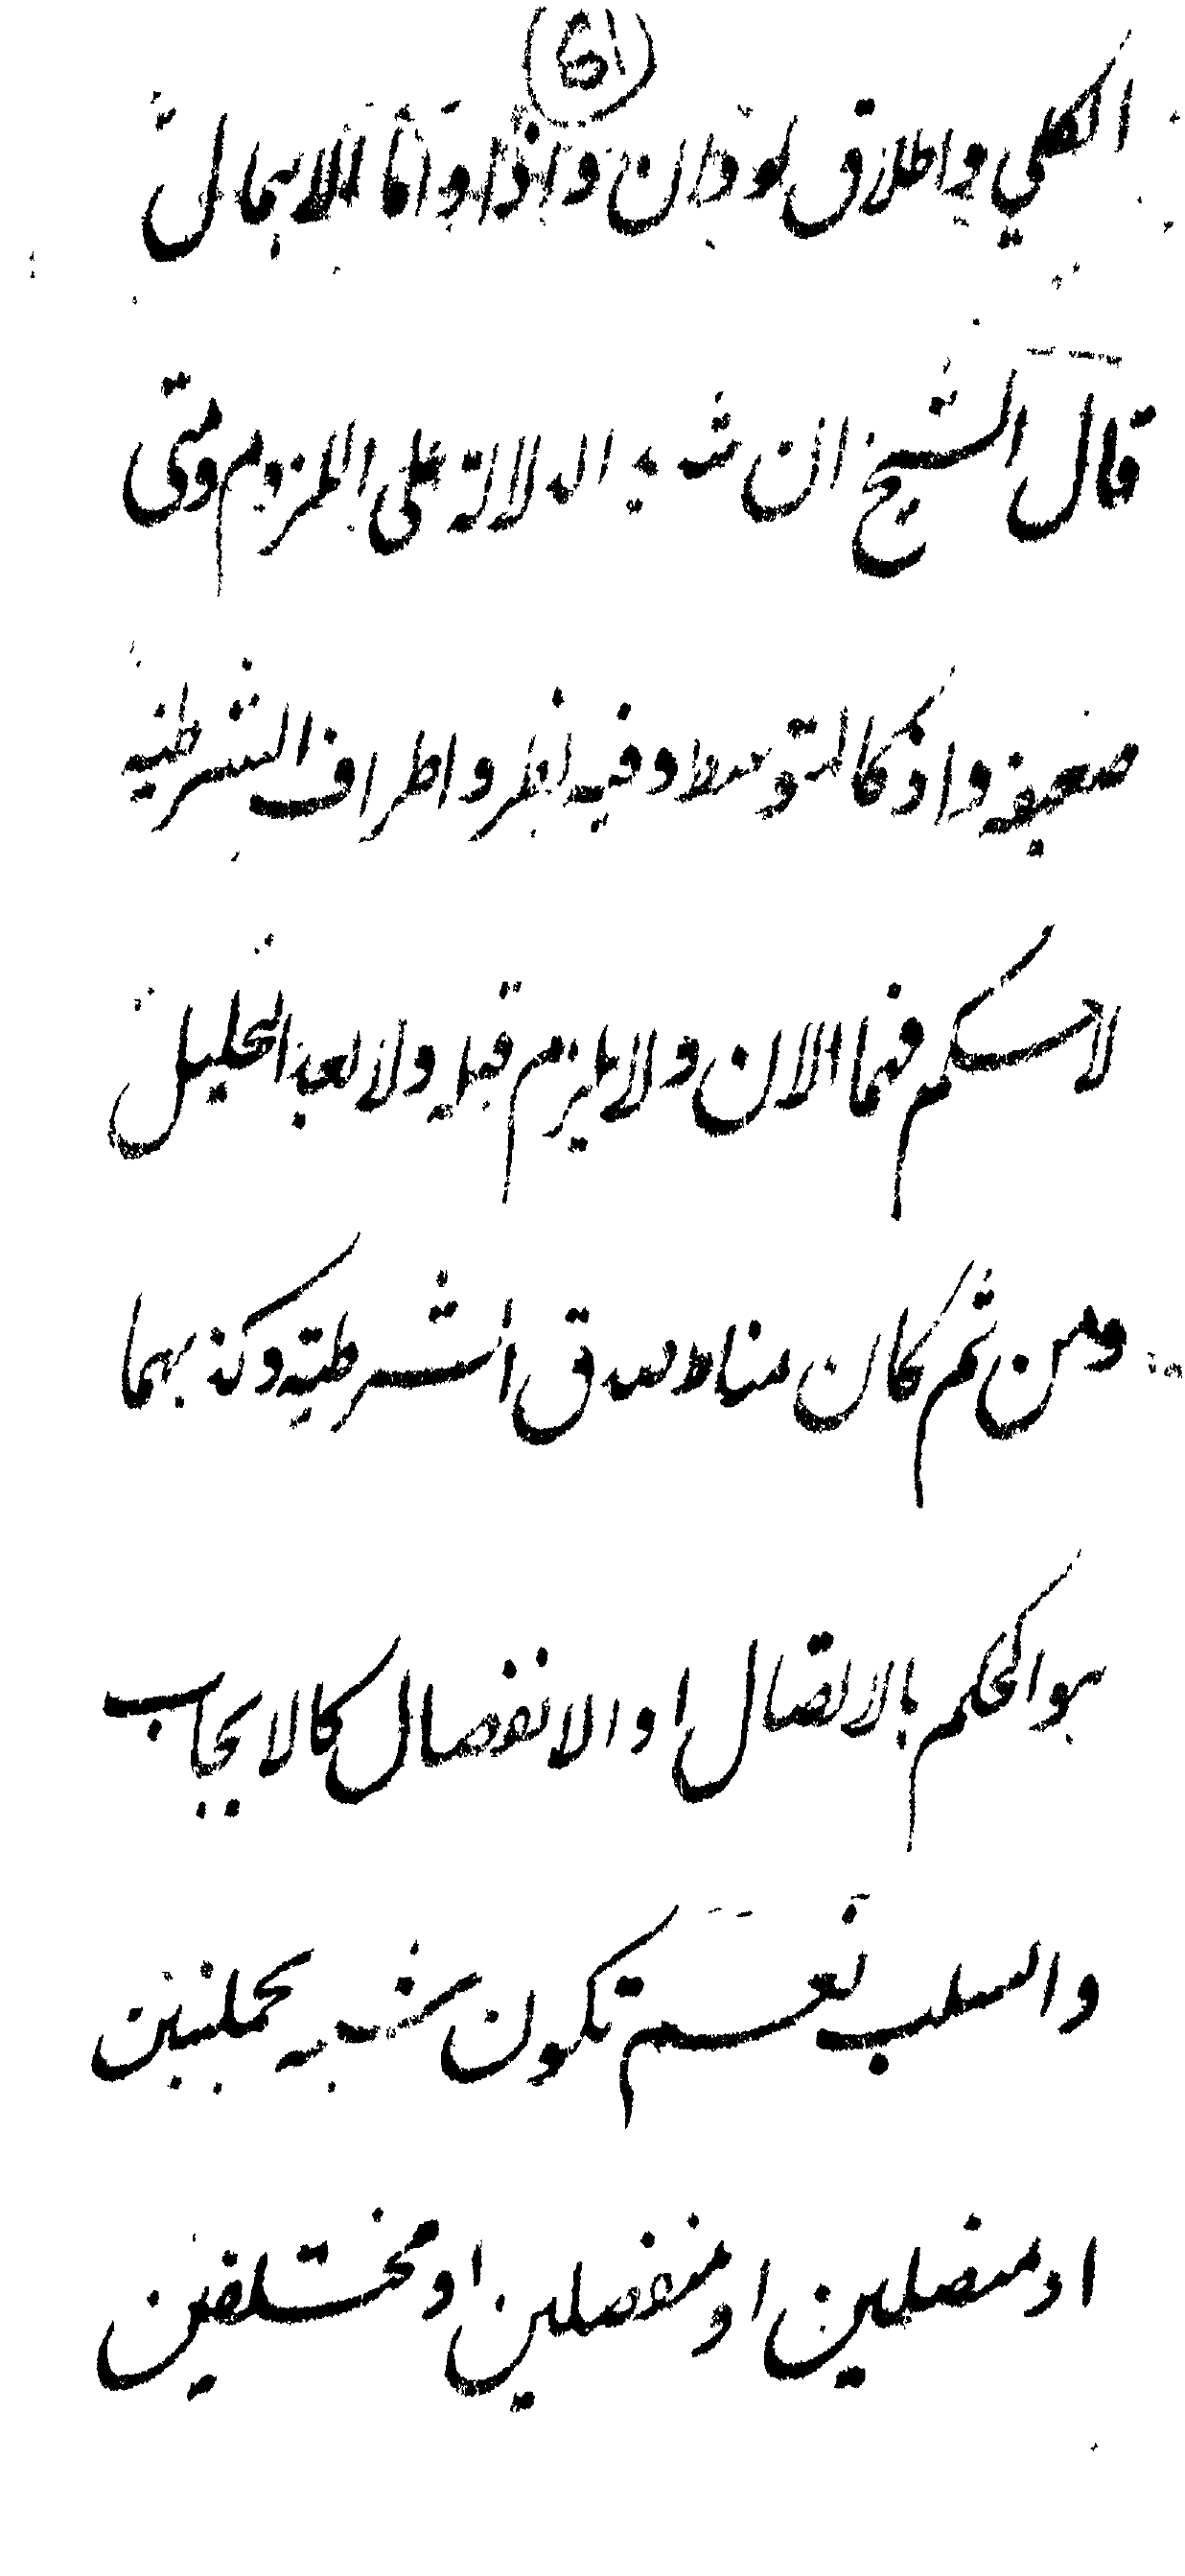 (61)
الكلي واطلاق لو وان واذا واما للاهمال
قال الشيخ ان شديد الدلالة على اللزوم ومتى
ضعيفة واذ كالمتوسط وفيه نظر واطراف الشرطية
لا حكم فيها الان ولا يلزم قبل ولا بعد التحليل
ومن ثم كان مناط صدق الشرطية وكذبهما
هو الحكم بالاتصال او الانفصال كالايجاب
والسلب نعم تكون شبيه بحمليتين
او متصلين او منفصلين او مختلفين